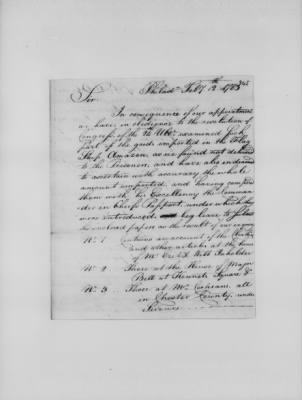 Philada Feby 12th 1783
Sir
In consequence of our appointment
we have in obedience to the resolution of
Congress of the 24 Ulto examined such
part of the goods imported in the Flag
Ship Amazon, as we found not delivered
to the Prisoners, and have also endeavored
to ascertain with accuracy the whole
amount imported, and having compared
them with his Excellency the Comman
der in Chiefs Passport, under which they
were introduced beg leave to
the enclosed papers as the result of our
No 1 Contains an account of the
and other articles at the house
of Mr
No 2 Those at the House of Major
Bell at Kennett Square &
No 3 Those at Mr Cochrans, all
in Chester County, under
Seizure